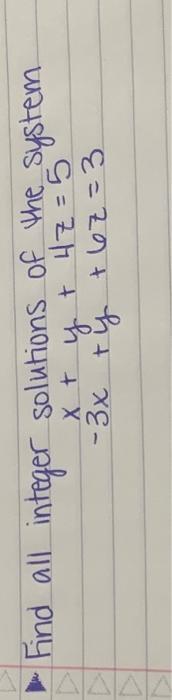 Find all integer solutions of the system
x + y + 4z = 5
-3x + y + 6z = 3